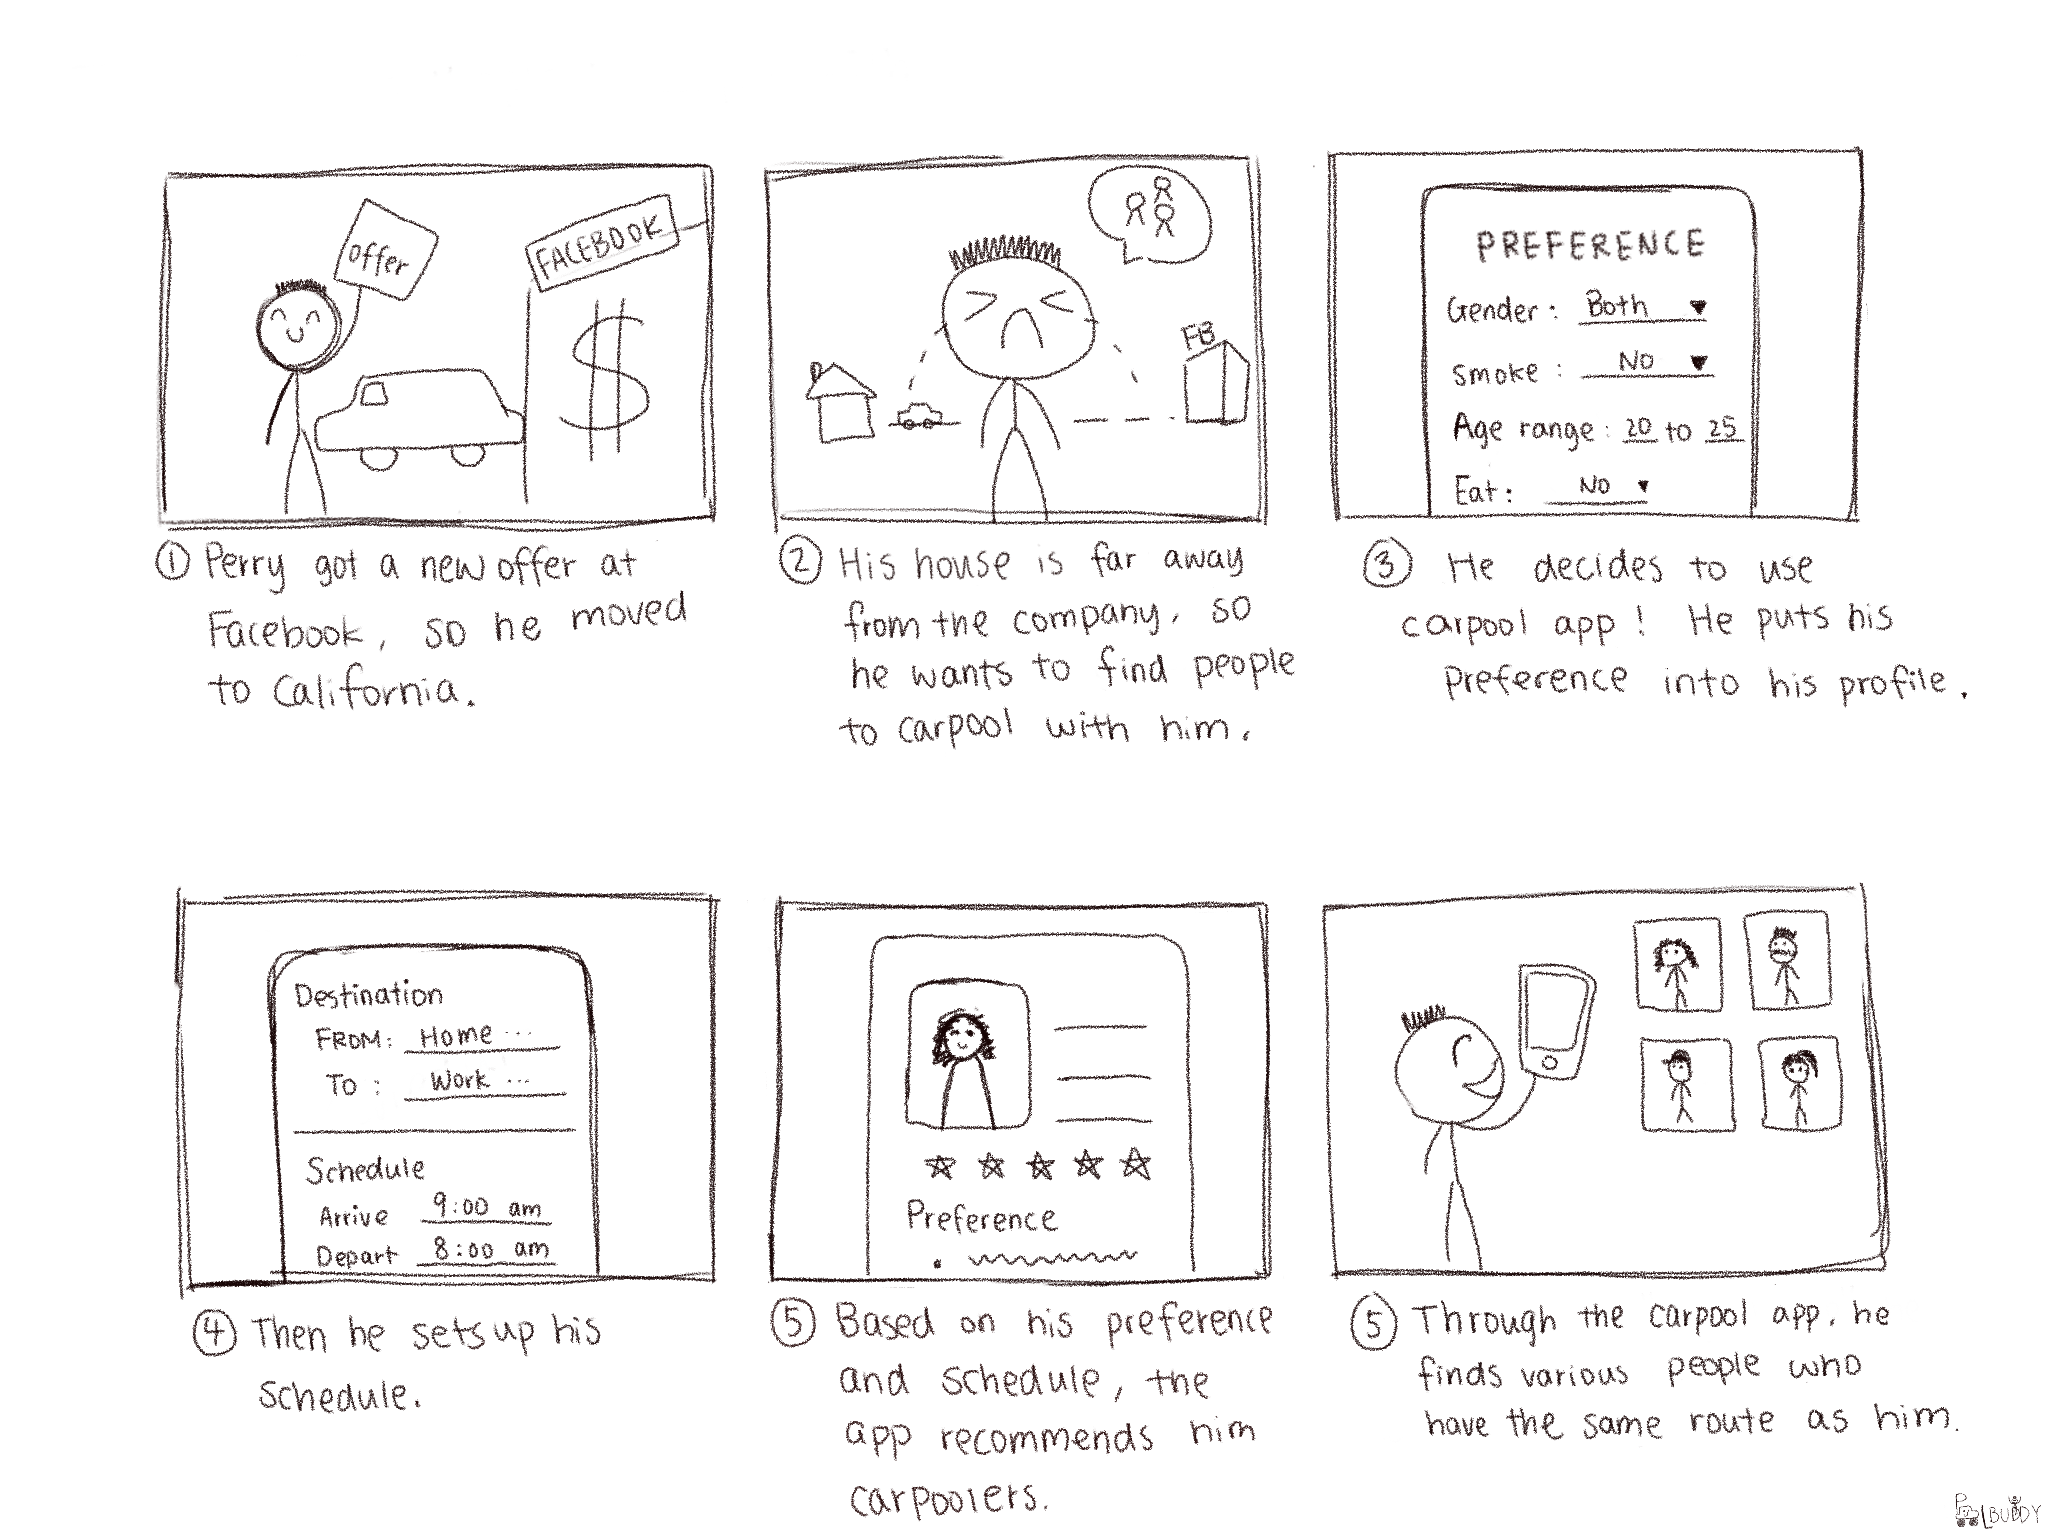 offer
FACEBOOK
$
① Perry got a new offer at
Facebook, so he moved
to California.
FB
② His house is far away
from the company, so
he wants to find people
to carpool with him.
PREFERENCE
Gender: Both ▼
Smoke: No ▼
Age range: 20 to 25
Eat: No ▼
③ He decides to use
carpool app! He puts his
preference into his profile.
Destination
FROM: Home ...
To: Work ...
Schedule
Arrive 9:00 am
Depart 8:00 am
④ Then he sets up his
schedule.
Preference
⑤ Based on his preference
and schedule, the
app recommends him
carpoolers.
⑤ Through the carpool app, he
finds various people who
have the same route as him.
POOLBUDDY